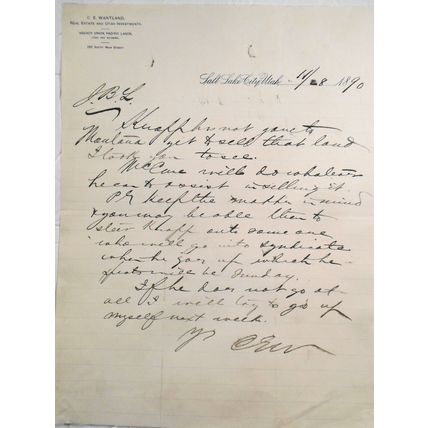 C. E. WANTLAND,
REAL ESTATE AND UTAH INVESTMENTS.
AGENCY UNION PACIFIC LANDS,
Salt Lake City, Utah 11/28 1890
J.B.L.
Knapp has not gone to
Montana yet to sell that land
I took him to see.
McCune will do whatever
he can to assist in selling it.
Pls keep the matter in mind
& you may be able then to
steer Knapp onto some one
who will go into syndicate
when he goes up which he
will be Sunday.
If he does not go at
all I will try to go up
myself next week.
Yr CEW